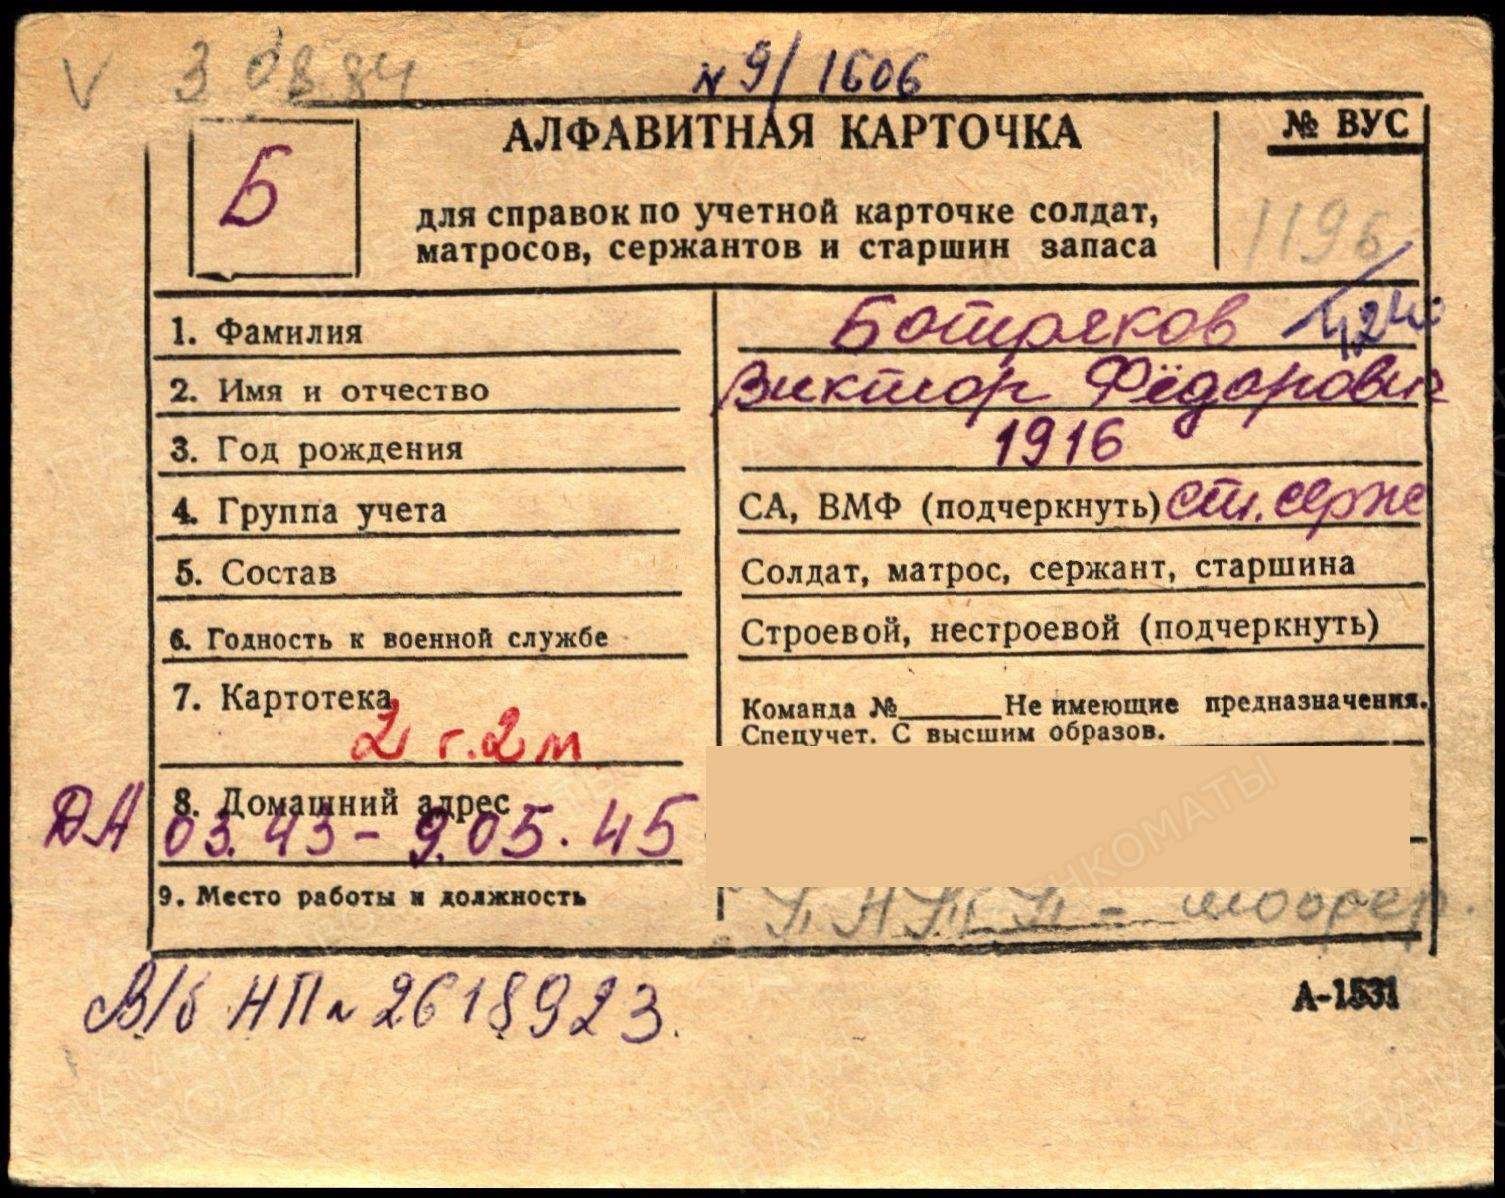 V 3 08.84 № 9/1606
Б
АЛФАВИТНАЯ КАРТОЧКА
№ ВУС
для справок по учетной карточке солдат,
матросов, сержантов и старшин запаса
1196
1. Фамилия Ботряков
2. Имя и отчество Виктор Фёдорович
3. Год рождения 1916
4. Группа учета СА, ВМФ (подчеркнуть) ст. серж
5. Состав Солдат, матрос, сержант, старшина
6. Годность к военной службе Строевой, нестроевой (подчеркнуть)
7. Картотека Команда № Не имеющие предназначения.
2 г. 2 м. Спецучет. С высшим образов.
8. Домашний адрес
ДА 03.43 - 9.05.45
9. Место работы и должность
В/б НП № 2618923.
А-1531